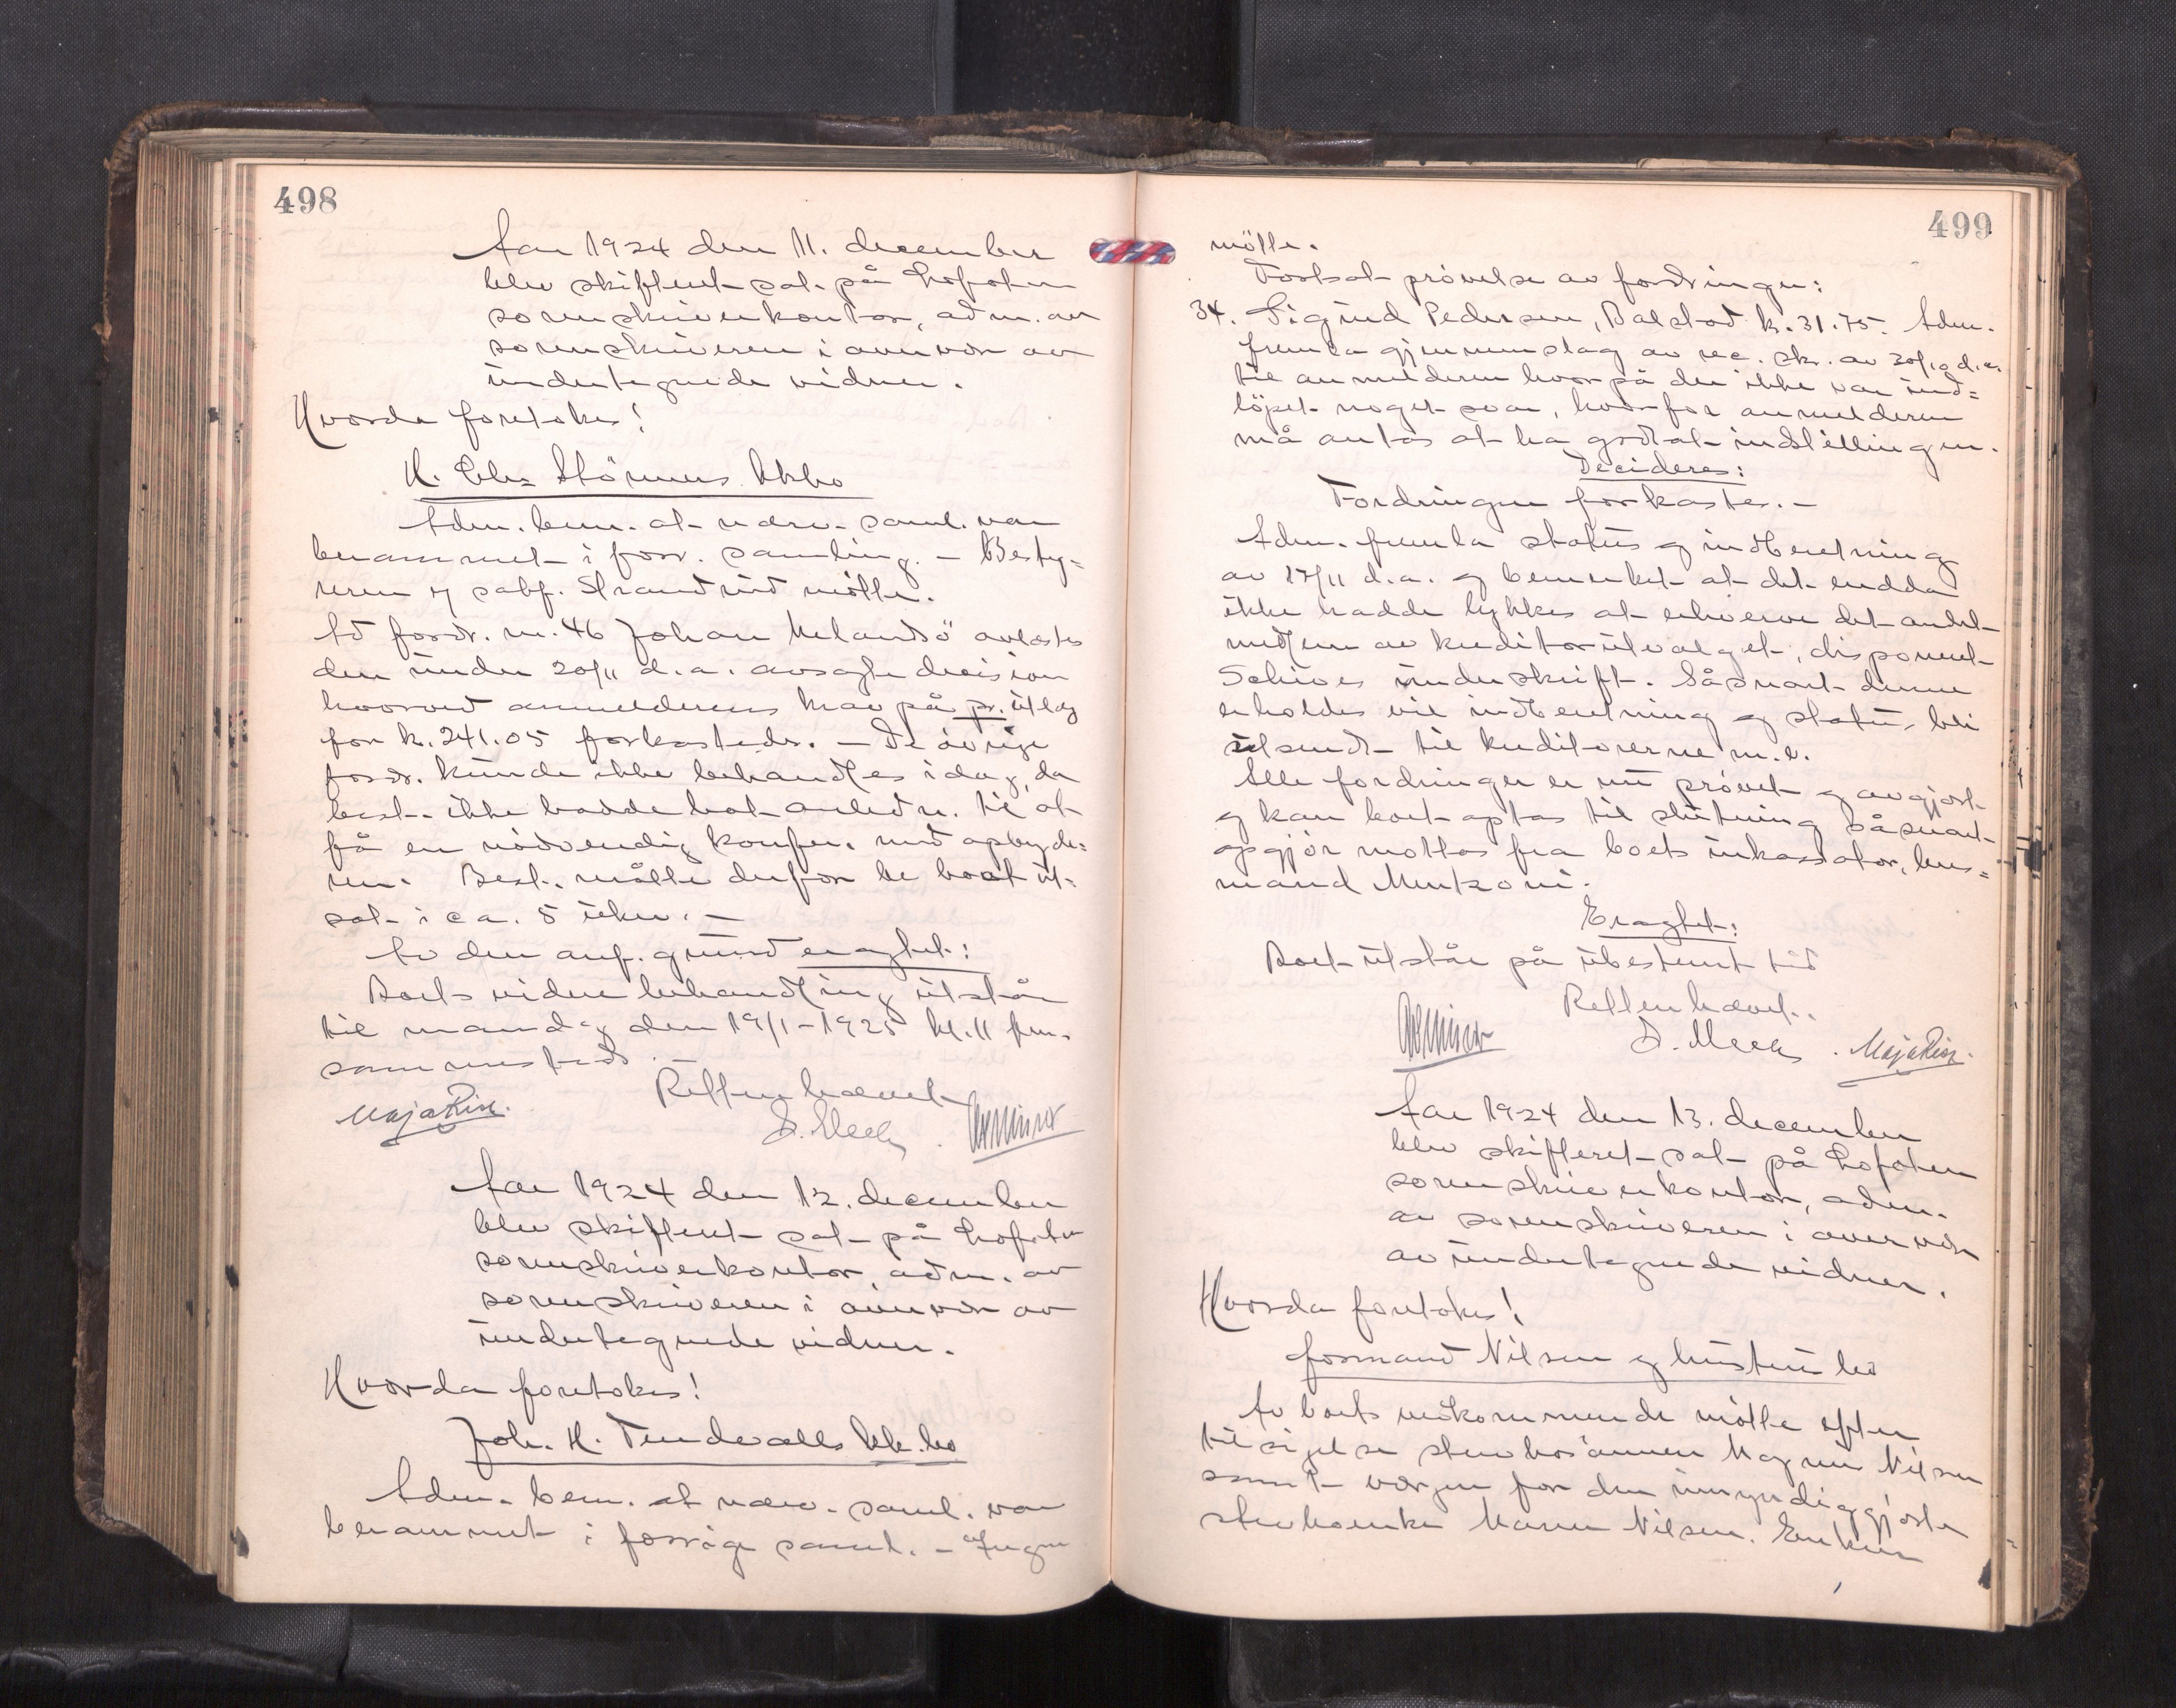 498
Aar 1924 den 11. december
blev skifteret sat på Lofoten
sorenskriverkontor, adm. av
sorenskriveren i overvær av
undertegnede vidner.
Hvorda foretokes!
H. Chr. Störmers kkbo
Adm. bem. at nærv. saml. var
berammet i forr. samling. – Besty=
reren og sakf. Strandrud mötte.
Ad fordr. nr. 46 Johan Melandsö avlæstes
den under 20/11 d.a. avsagte decision
hvorved anmelderens krav på pr. utlæg
for k. 241.05 forkastedes. – De övrige
fordr. kunde ikke behandles idag, da
best. ikke hadde hat anledn. til at
få en nödvendig konfer. med opbyde=
ren. Best. måtte derfor be boet ut=
sat i ca. 5 uker. –
Av den anf. grund eragtet:
Boets videre behandling utstår
til mandag den 19/1-1925 kl. 11 fm.
sammesteds. –
Retten hævet
Maja Rise. J. Meek.
Aar 1924 den 12. december
blev skifteret sat på Lofoten
sorenskriverkontor, adm. av
sorenskriveren i overvær av
undertegnede vidner.
Hvorda foretokes!
Joh. H. Tendvalls kk.bo
Adm. bem. at nærv. saml. var
berammet i forrige saml. – Ingen
499
mötte.
Fortsat prövelse av fordringer:
34. Sigurd Pedersen, Balstad k. 31.75. Adm.
fremla gjennemslag av rec. skr. av 30/10 d.a.
til anmelderen hvorpå der ikke var ind=
löpet noget svar, hvorfor anmelderen
må antas at ha godtat indstillingen.
Decideres:
Fordringen forkastes. –
Adm. fremla status og indberetning
av 17/11 d.a. og bemerket at det endda
ikke hadde lykkes at erhverve det andet
medlem av kreditorutvalget, disponent
Schives underskrift. Såsnart denne
erholdes vil indberetning og status bli
utsendt til kreditorerne m.v.
Alle fordringer er nu prövet og avgjort
og kan boet optas til slutning såsnart
opgjör mottas fra boets inkassator, lens=
mand Munkvoni.
Eragtet:
Boet utstår på ubestemt tid
Retten hævet.
J. Meek. Maja Rise.
Aar 1924 den 13. december
blev skifteret sat på Lofoten
sorenskriverkontor, adm.
av sorenskriveren i overvær
av undertegnede vidner.
Hvorda foretokes!
Formand Nilsen og hustru bo
Av boets vedkommende mötte efter
tilsigelse stervbosönnen Magnus Nilsen
samt vergen for den umyndiggjorte
stervboenke Maren Nilsen. Enken